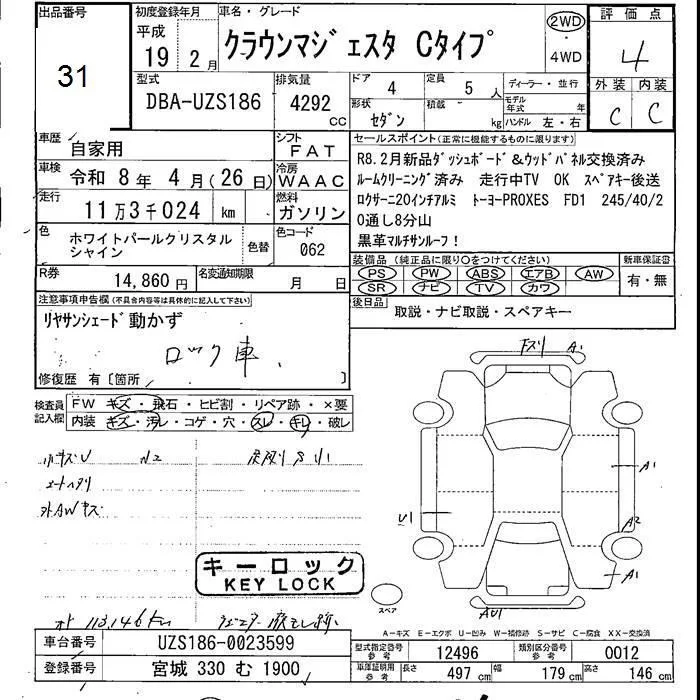 出品番号
31
初度登録年月
平成
19 2月
車名・グレード
クラウンマジェスタ Cタイプ
2WD
・
4WD
評価点
4
外装 内装
C C
型式
DBA-UZS186
排気量
4292
CC
ドア 4
定員 5人
ディーラー・並行
形状 セダン
積載 kg
モデル年式 年
ハンドル 左・右
車歴 自家用
シフト FAT
車検 令和 8年 4月(26日)
冷房 WAAC
走行 11万3千024 km
燃料 ガソリン
色 ホワイトパールクリスタル
シャイン
色替
色コード
062
R券 14,860円
名変通知期限 月 日
セールスポイント(正常に機能するものに限ります)
R8.2月新品ダッシュボード&ウッドパネル交換済み
ルームクリーニング済み 走行中TV OK スペアキー後送
ロクサーニ20インチアルミ トーヨーPROXES FD1 245/40/2
0通し8分山
黒革マルチサンルーフ!
装備品(純正品に限り○をつけてください)
新車保証書
PS PW ABS エアB AW
SR ナビ TV カワ
有・無
後日品 取説・ナビ取説・スペアキー
注意事項申告欄(不具合内容等は具体的に記入して下さい)
リヤサンシェード動かず
ロック車
修復歴 有〔箇所 〕
検査員
記入欄
FW キズ・飛石・ヒビ割・リペア跡・×要
内装 キズ・汚レ・コゲ・穴・スレ・キレ・破レ
小キズU
外AWキズ
キーロック
KEY LOCK
113,146km
Fスリ A1
A1
U1
A2
A1
AU1
スペア
A-キズ E-エクボ U-凹み W-補修跡 S-サビ C-腐食 XX-交換済
車台番号 UZS186-0023599
登録番号 宮城 330 む 1900
型式指定番号
参考
12496
類別区分番号
参考
0012
車庫証明用
参考
長さ 497 cm
幅 179 cm
高さ 146 cm